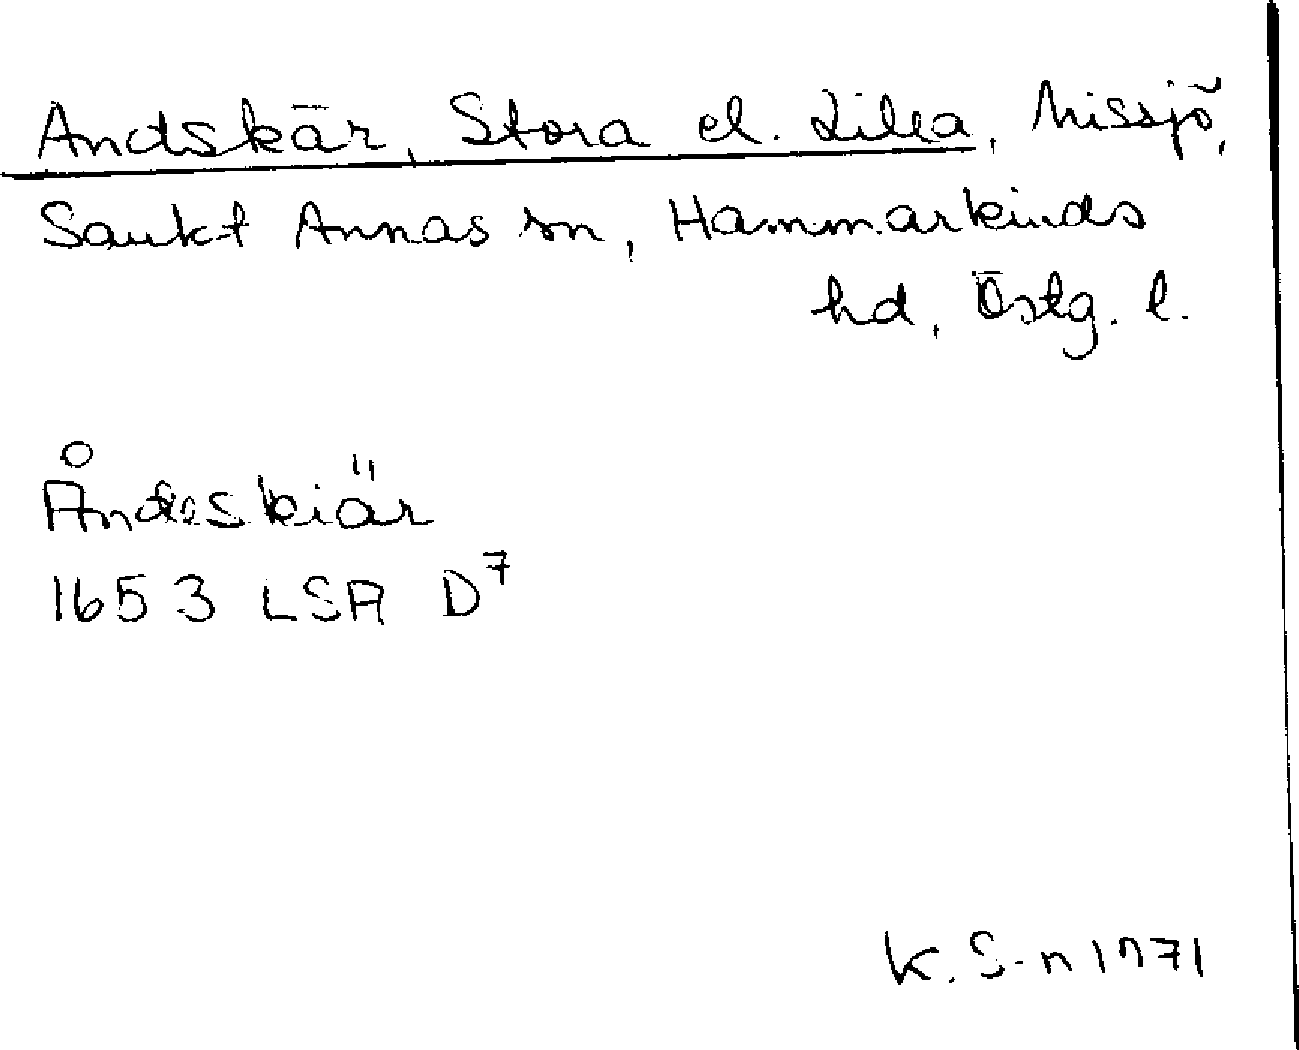 Andskär, Stora el. Lilla, Missjö,
Sankt Annas sn, Hammarkinds
hd, Östg. l.
Åndeskiär
1653 LSA D⁷
K. S-n 1971